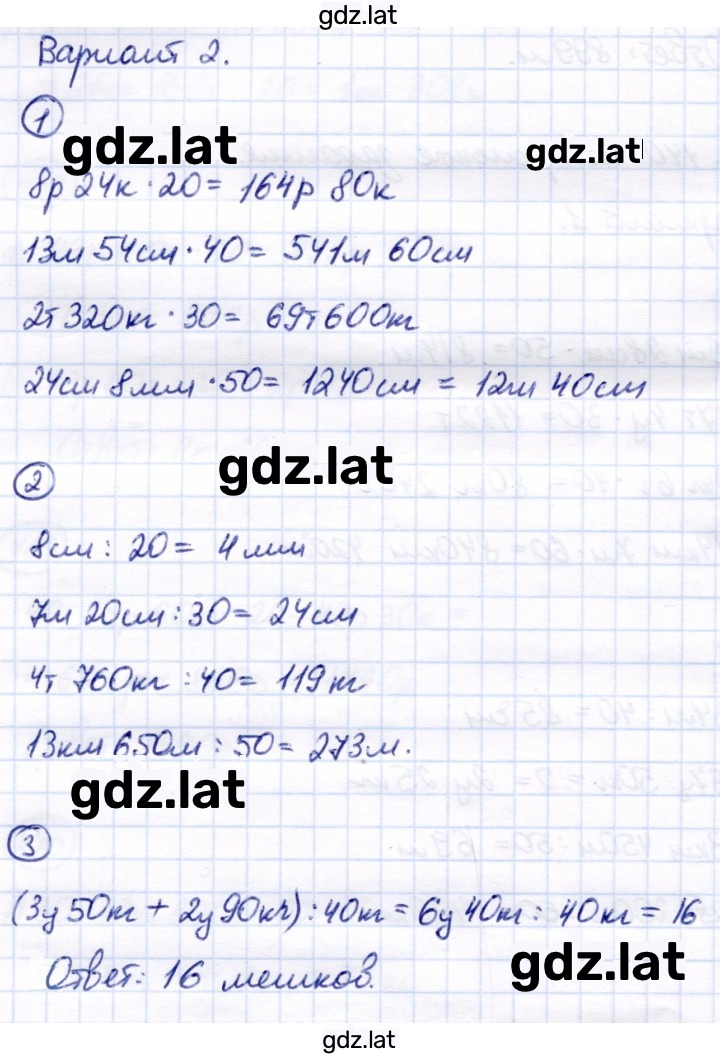 gdz.lat
Вариант 2.
1
gdz.lat gdz.lat
8р 24к · 20 = 164р 80к
13м 54см · 40 = 541м 60см
2т 320кг · 30 = 69т 600кг
24см 8мм · 50 = 1240см = 12м 40см
gdz.lat
2
8см : 20 = 4мм
7м 20см : 30 = 24см
4т 760кг : 40 = 119кг
13км 650м : 50 = 273м.
gdz.lat
3
(3ц 50кг + 2ц 90кг) : 40кг = 6ц 40кг : 40кг = 16
Ответ: 16 мешков.
gdz.lat
gdz.lat